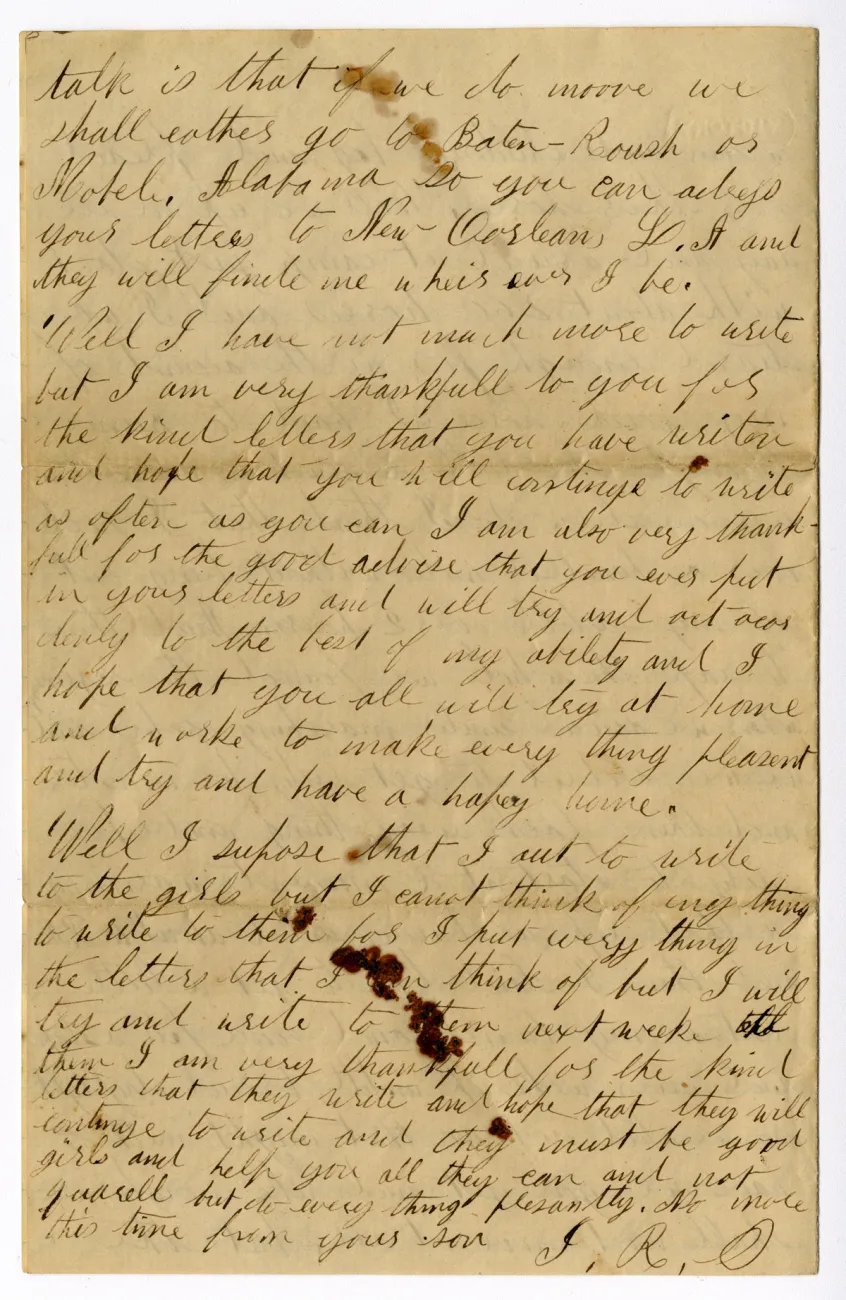 talk is that if we do moove we
shall eather go to Baten-Roush or
Mobele, Alabama so you can adress
your letters to New-Oorleans L. A and
they will finde me wheir ever I be.
Well I have not much more to write
but I am very thankfull to you for
the kind letters that you have writen
and hope that you will continye to write
as often as you can I am also very thank-
full for the good advise that you ever put
in your letters and will try and act acor
denly to the best of my ability and I
hope that you all will try at home
and worke to make every thing plasent
and try and have a hapey home.
Well I supose that I aut to write
to the girls but I canot think of any thing
to write to them for I put every thing in
the letters that I can think of but I will
try and write to them next weeke tell
them I am very thankfull for the kind
letters that they write and hope that they will
continye to write and they must be good
girls and help you all they can and not
quarell but do every thing plesantly. No more
this time from your son I. R. O